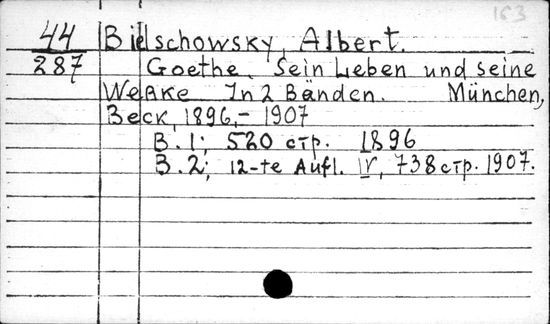 163
44 Bielschowsky, Albert.
287 Goethe. Sein Leben und seine
Werke In 2 Bänden. München,
Beck, 1896,- 1907
B.1; 520 стр. 1896
B.2; 12-te Aufl. IV, 738 стр. 1907.